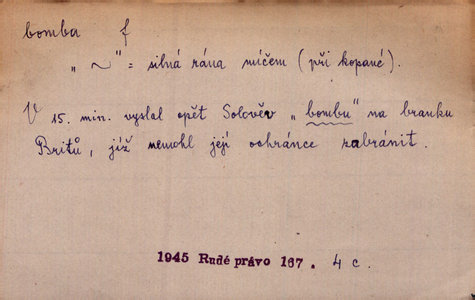 bomba f
„ ~ " = silná rána míčem (při kopané).
V 15. min. vyslal opět Solověv „bombu" na branku
Britů, jíž nemohl její ochránce zabránit.
1945 Rudé právo 167. 4 c.